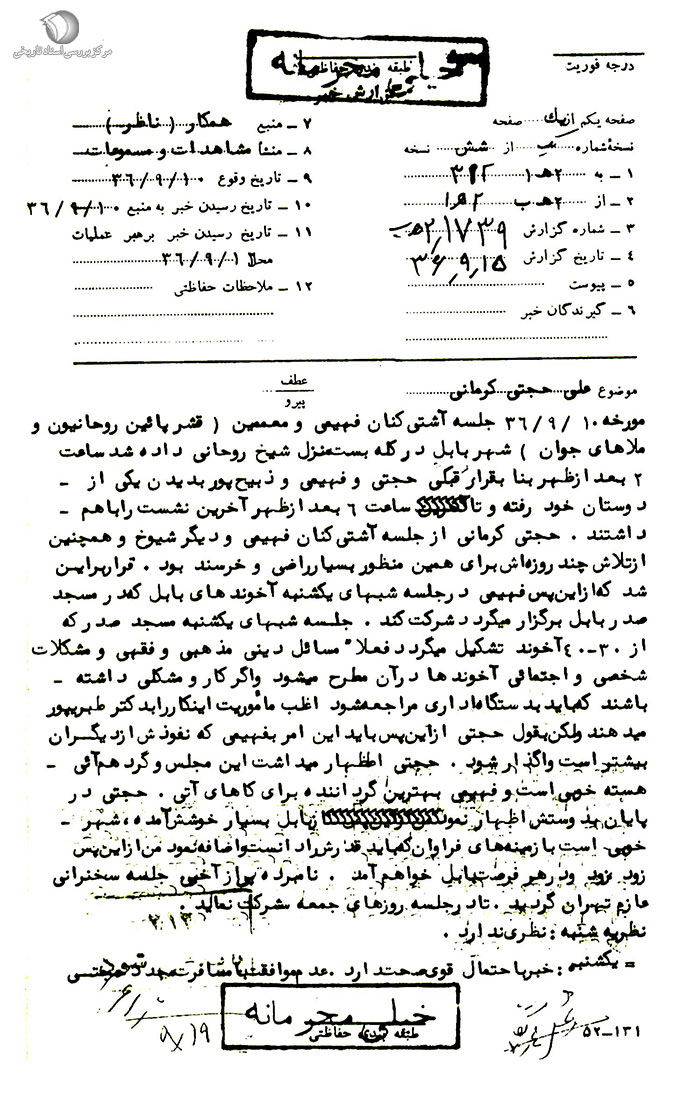 مرکز بررسی اسناد تاریخی
خیلی محرمانه
طبقه بندی حفاظتی
گزارش خبر
درجه فوریت
صفحه یکم از یک صفحه
نسخهٔ شماره یک از شش نسخه
۱ ـ به ۲هـ۱ ۳۱۲
۲ ـ از ۲هـ ب ۱هـ۲
۳ ـ شماره گزارش ۲٫۱۷۳۹هـ ب
۴ ـ تاریخ گزارش ۳۶٫۹٫۱۵
۵ ـ پیوست
۶ ـ گیرندگان خبر
۷ ـ منبع همکار (ناظر)
۸ ـ منشأ مشاهدات و مسموعات
۹ ـ تاریخ وقوع ۳۶/۹/۱۰
۱۰ ـ تاریخ رسیدن خبر به منبع ۳۶/۹/۱۰
۱۱ ـ تاریخ رسیدن خبر برهبر عملیات
محل ۳۶/۹/۱۲
۱۲ ـ ملاحظات حفاظتی
موضوع علی حجتی کرمانی
عطف
پیرو
مورخه ۱۰ /۹ /۳۶ جلسه آشتی کنان فهیمی و معممین ( قشر پائین روحانیون و
ملاهای جوان ) شهر بابل در کله بست منزل شیخ روحانی داده شد ساعت
۲ بعد از ظهر بنا بقرار قبلی حجتی و فهیمی و ذبیح پور بدیدن یکی از ـ
دوستان خود رفته و تا ساعت ۶ بعد از ظهر آخرین نشست را باهم ـ
داشتند . حجتی کرمانی از جلسه آشتی کنان فهیمی و دیگر شیوخ و همچنین
از تلاش چند روزه‌اش برای همین منظور بسیار راضی و خرسند بود . قرار براین
شد که از این پس فهیمی در جلسه شبهای یکشنبه آخوند های بابل که در مسجد
صدر بابل برگزار میگردد شرکت کند . جلسه شبهای یکشنبه مسجد صدر که
از ۳۰ـ۴۰ آخوند تشکیل میگردد فعلا" مسائل دینی مذهبی و فقهی و مشکلات
شخصی و اجتمائی آخوند ها در آن مطرح میشود واگر کار و مشکلی داشته ـ
باشند که باید بدستگاه اداری مراجعه شود اغلب مأموریت اینکار را بدکتر طبریپور
میدهند ولکن بقول حجتی از این پس باید این امر بفهیمی که نفوذش از دیگران
بیشتر است واگذار شود . حجتی اظهار میداشت این مجلس و گردهم آئی ـ
هسته خوبی است و فهیمی بهترین گرداننده برای کاهای آتی . حجتی در
پایان بدوستش اظهار نمود از بابل بسیار خوشش آمده ، شهر ـ
خوبی است با زمینه‌های فراوان که باید قدرش را دانست و اضافه نمود من از این پس
زود بزود و در هر فرصت ببابل خواهم آمد . نامبرده پس از آخرین جلسه سخنرانی
عازم تهران گردید . تا در جلسه روزهای جمعه شرکت نماید .
۳۱۲
نظریه شنبه : نظری ندارد .
یکشنبه : خبر باحتمال قوی صحت دارد . عدم موافقت با مسافرت مجدد حجتی
شود
۹/۱۹
خیلی محرمانه
طبقه بندی حفاظتی
۵۲ـ۱۳۱